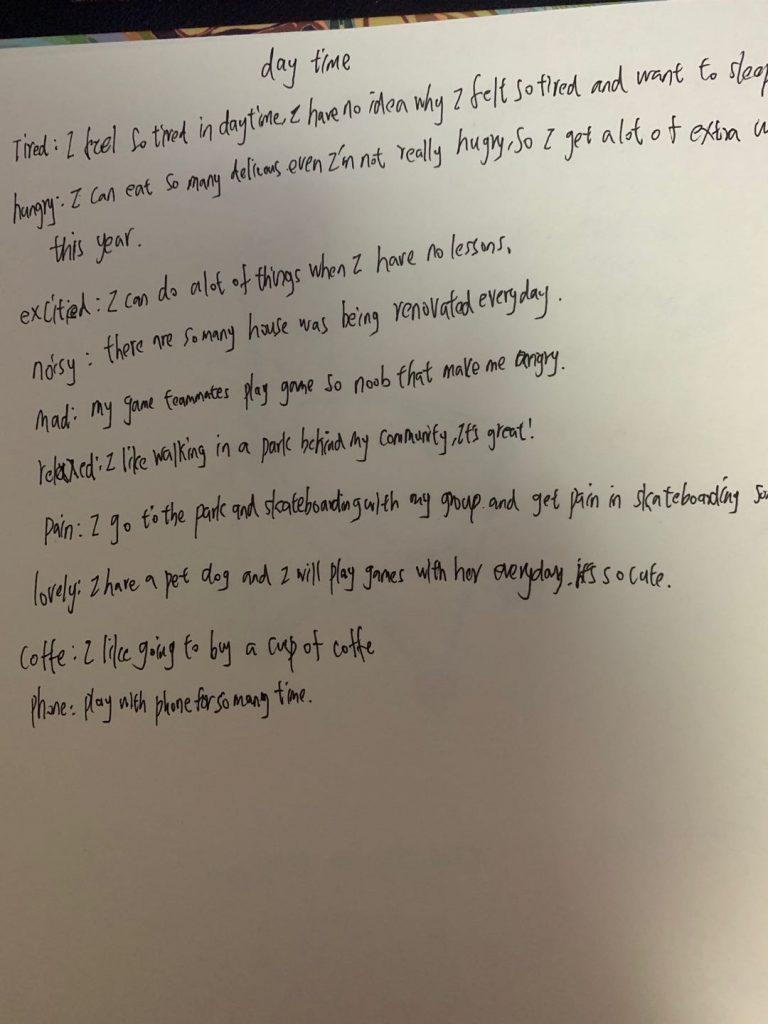 day time
Tired: I feel so tired in daytime, I have no idea why I felt so tired and want to sleep
hungry: I can eat so many delicous even I'm not really hugry, So I get a lot of extra
this year.
excitied: I can do alot of things when I have no lessons.
noisy: there are so many house was being renovated everyday.
mad: my game teammates play game so noob that make me angry.
relaxed: I like walking in a park behind my community, It's great!
pain: I go to the park and skateboarding with my group. and get pain in skateboarding
lovely: I have a pet dog and I will play games with her everyday. it's so cute.
coffe: I like going to buy a cup of coffe
phone: play with phone for so many time.